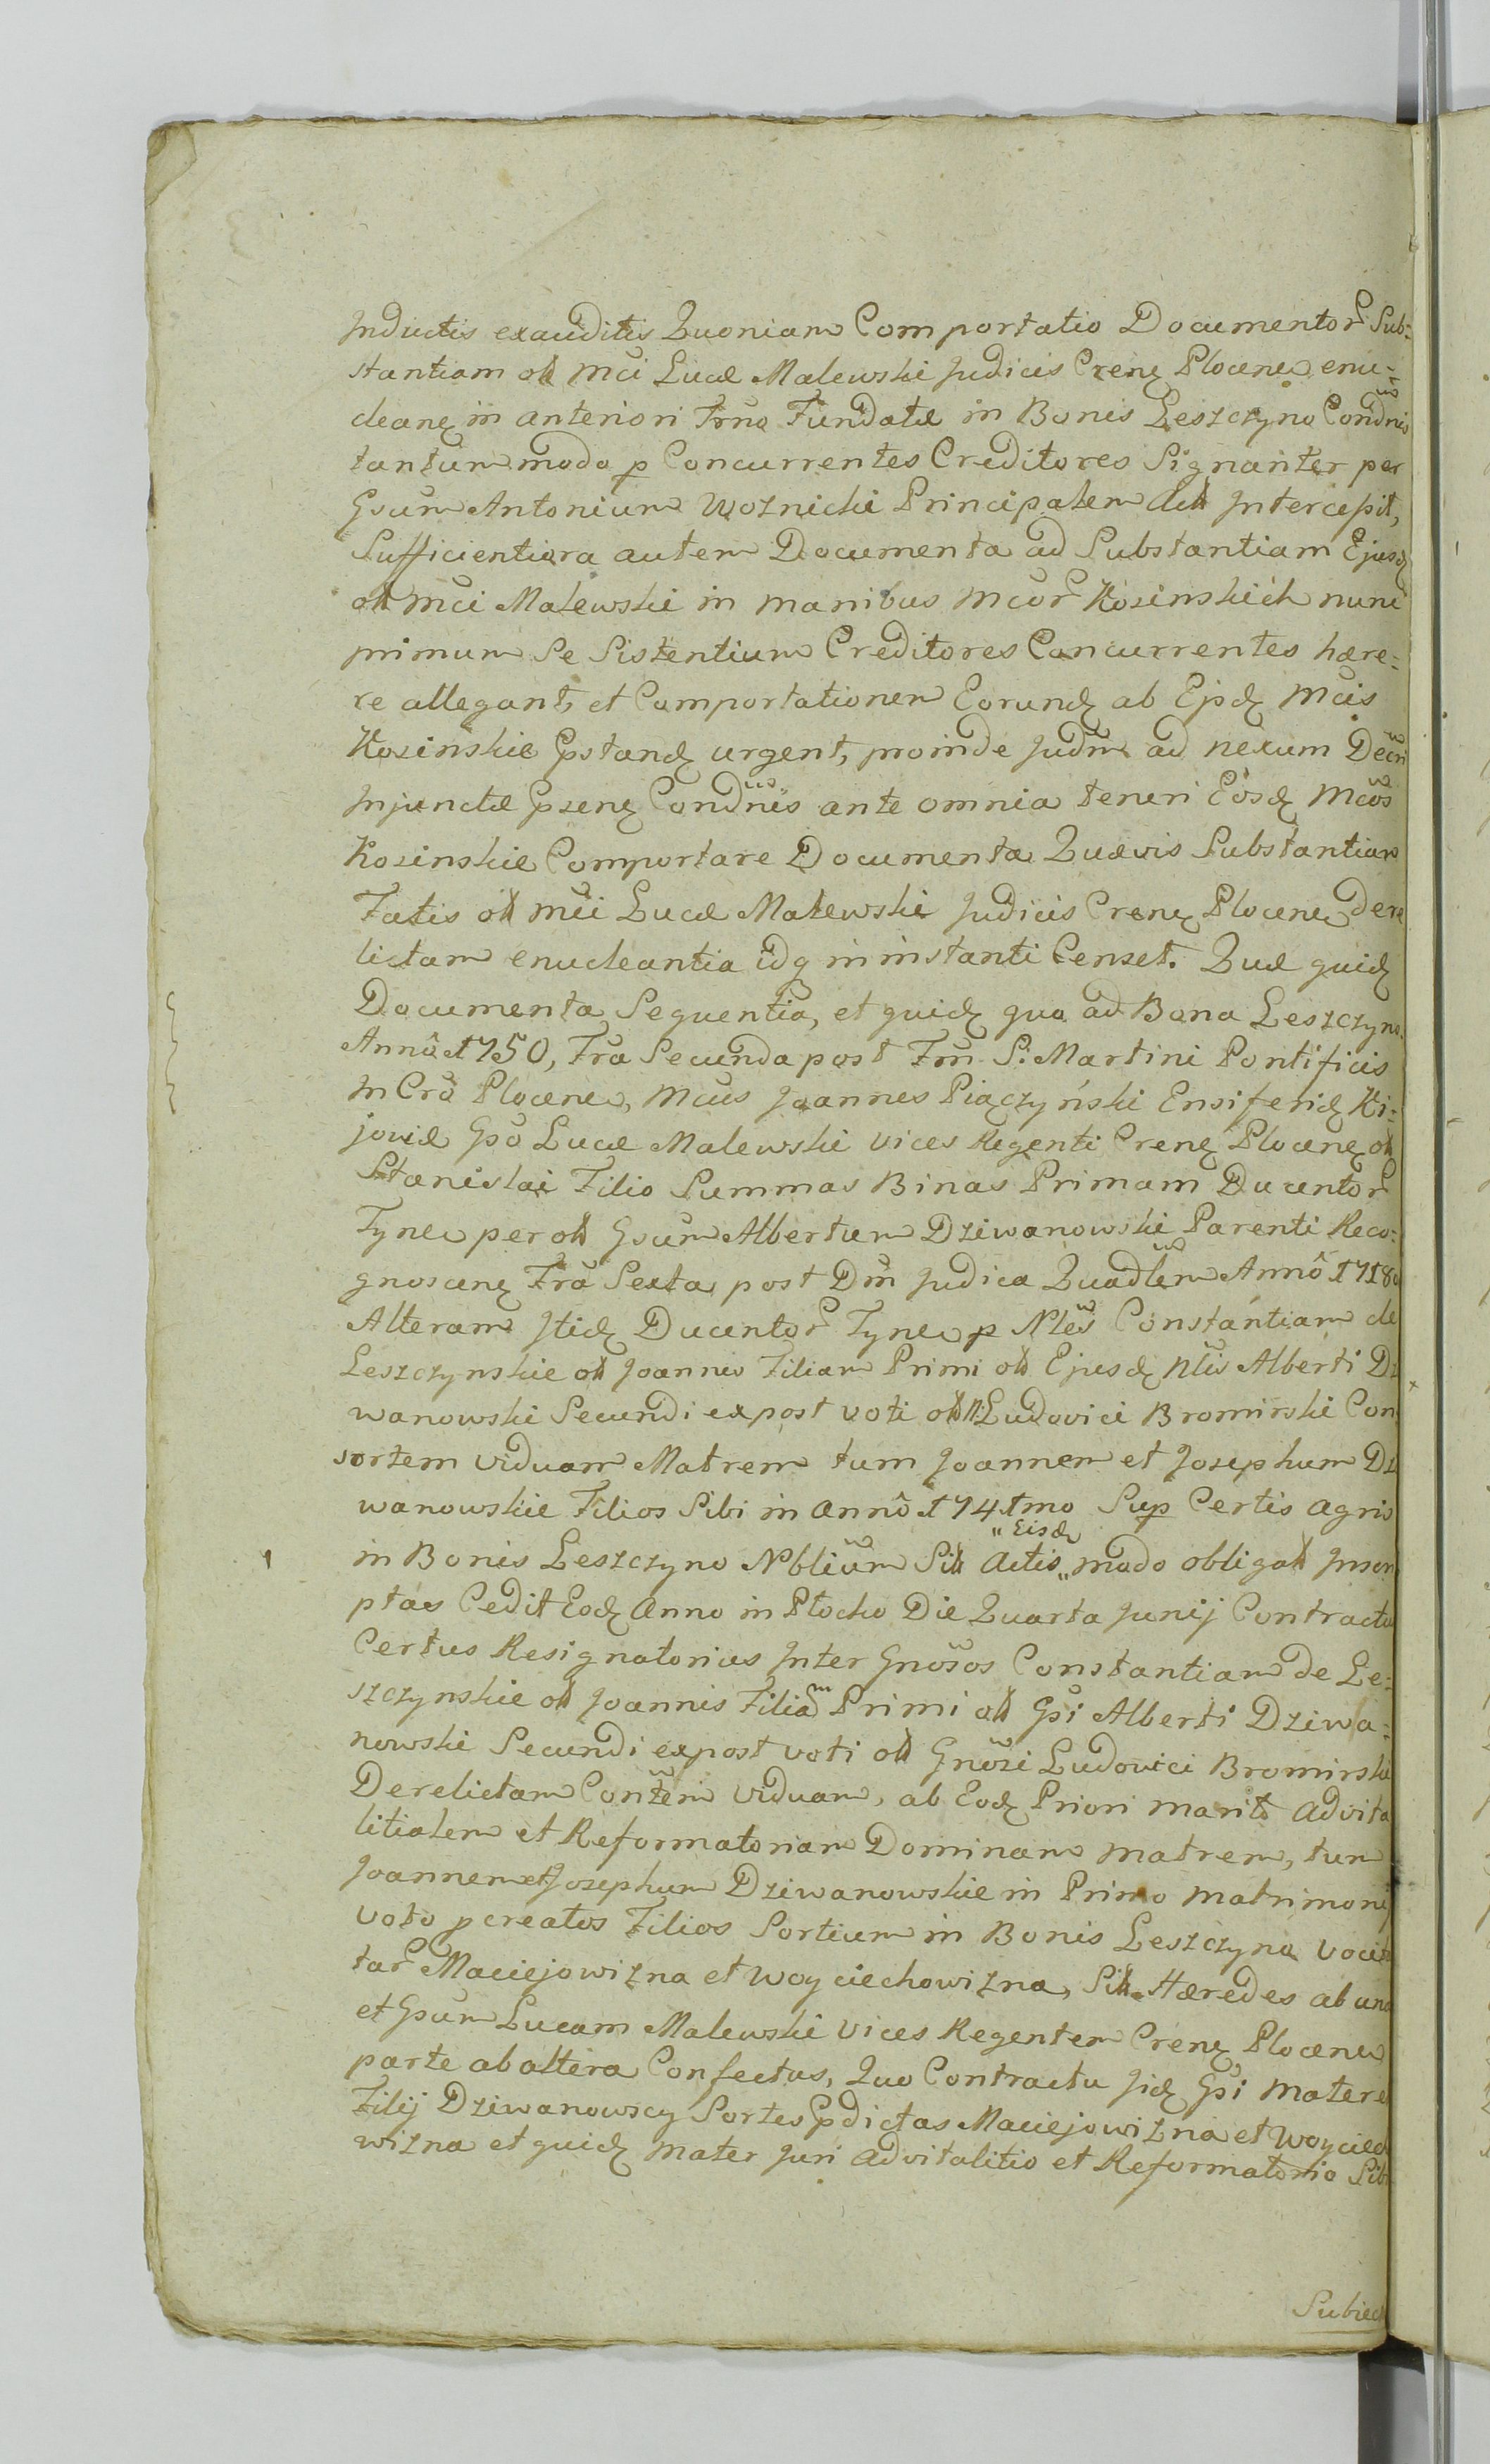 Inductis exauditis Quoniam Comportatio Documentor̃ Sub-
stantiam olł Mci Lucæ Malewski Judicis Crenȩ Plocene enu-
cleanȩ in anteriori Trno Fundatæ in Bonis Leszczyno Condnis
tantum modo p Concurrentes Creditores Signanter per
Gsum Antonium Woznicki Principalem Actł Intercessit,
Sufficientiora autem Documenta ad Substantiam Ejusdȩ
olł Mci Malewski in manibus Mcor̃ Kosinskich nunc
primum Se Sistentium Creditores Concurrentes hære-
re allegant, et Comportationem Eorundȩ ab Ejsdȩ Mcis
Kosinskie Pstandȩ urgent, proinde Judm ad nexum Decri
Injunctæ Psenȩ Condnis ante omnia teneri Eosdȩ Mcos
Kosinskie Comportare Documenta Quævis Substantiam
Fatis olł Mci Lucæ Malewski Judicis Crenȩ Plocene dere
lictam enucleantia idq in instanti Censet. Quæ quidȩ
Documenta Sequentia, et quidȩ quo ad Bona Leszczyno.
Annô 1750, Fra Secunda post Fm S. Martini Pontificis
In Crã Plocene, Mcus Joannes Piączyński Ensiferidȩ Ki-
joviæ Gso Lucæ Malewski Vices Regenti Crenȩ Plocenȩ olł
Stanislai Filio Summas Binas Primam Ducentor̃
Tyne per olł Gsum Albertum Dziwanowski Parenti Reco-
gnoscenȩ Fra Sexta post Dm Judica Quadlem Annô 1718
Alteram Itidȩ Ducentor̃ Tyne p Nles Constantiam de
Leszczynskie olł Joannis Filiam Primi olł Ejusdȩ Nlis Alberti Dz
wanowski Secundi expost voti olł N. Ludovici Bromirski Con
sortem viduam Matrem tum Joannem et Josephum Dz
wanowskie Filios Sibi in Annô 1741mo Sup Certis agris
in Bonis Leszczyno Nblium Sitł Actis „Eisdȩ„ modo obligatł Inscri
ptas Cedit Eodȩ Anno in Płocko Die Quarta Junij Contractu
Certus Resignatorius Inter Gnosos Constantiam de Le-
szczynskie olł Joannis Filiam Primi olł Gsi Alberti Dziwa-
nowski Secundi expost voti olł Gnosi Ludovici Bromirski
Derelictam Contem Viduam, ab Eodȩ Priori marito Advita
litialem et Reformatoriam Dominam matrem, tum
Joannem et Josephum Dziwanowskie in Primo matrimonij
Voto pcreatos Filios Sortium in Bonis Leszczyno Vocit
tar̃ Maciejowizna et Woyciechowizna, Sitł Hæredes ab una
et Gsum Lucam Malewski Vices Regentem Crenȩ Plocene
parte ab altera Confectus, Quo Contractu Jidȩ Gsi Mater et
Filij Dziwanowscy Sortes Pdictas Maciejowizna et Woyciech
wizna et quidȩ Mater Juri Advitalitio et Reformatorio Sib
Subiec